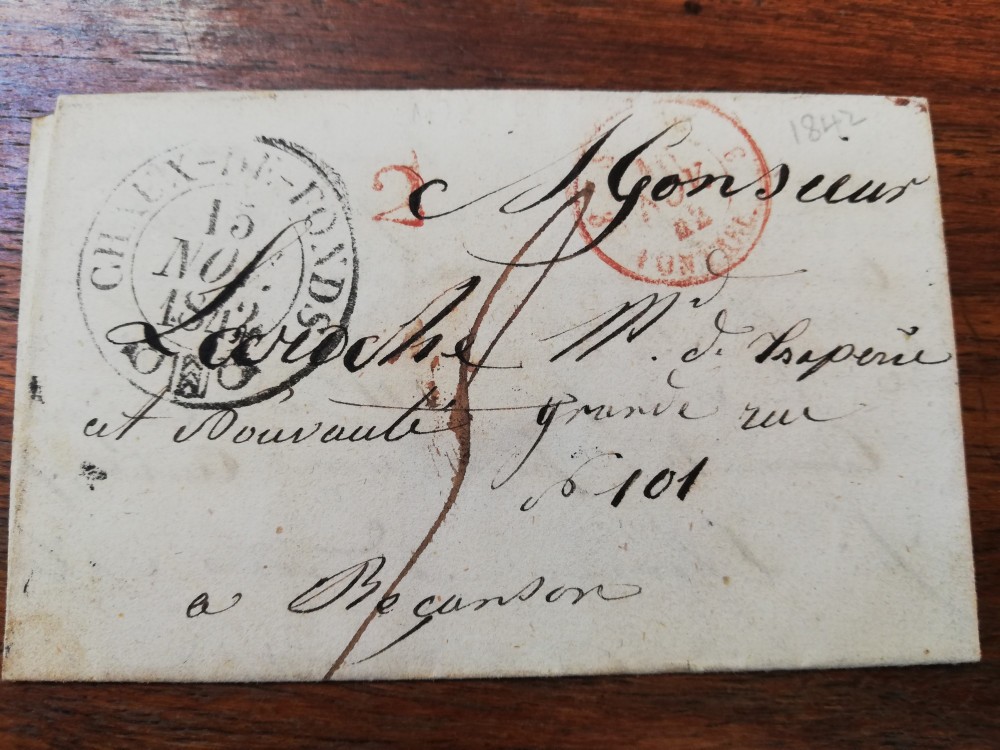 1842
CHAUX-DE-FONDS
15
NOV.
1842
2
NOV
42
PONTARL.
Monsieur
Laroche Md. de
et Nouvauté grande rue
No 101
a Beçanson